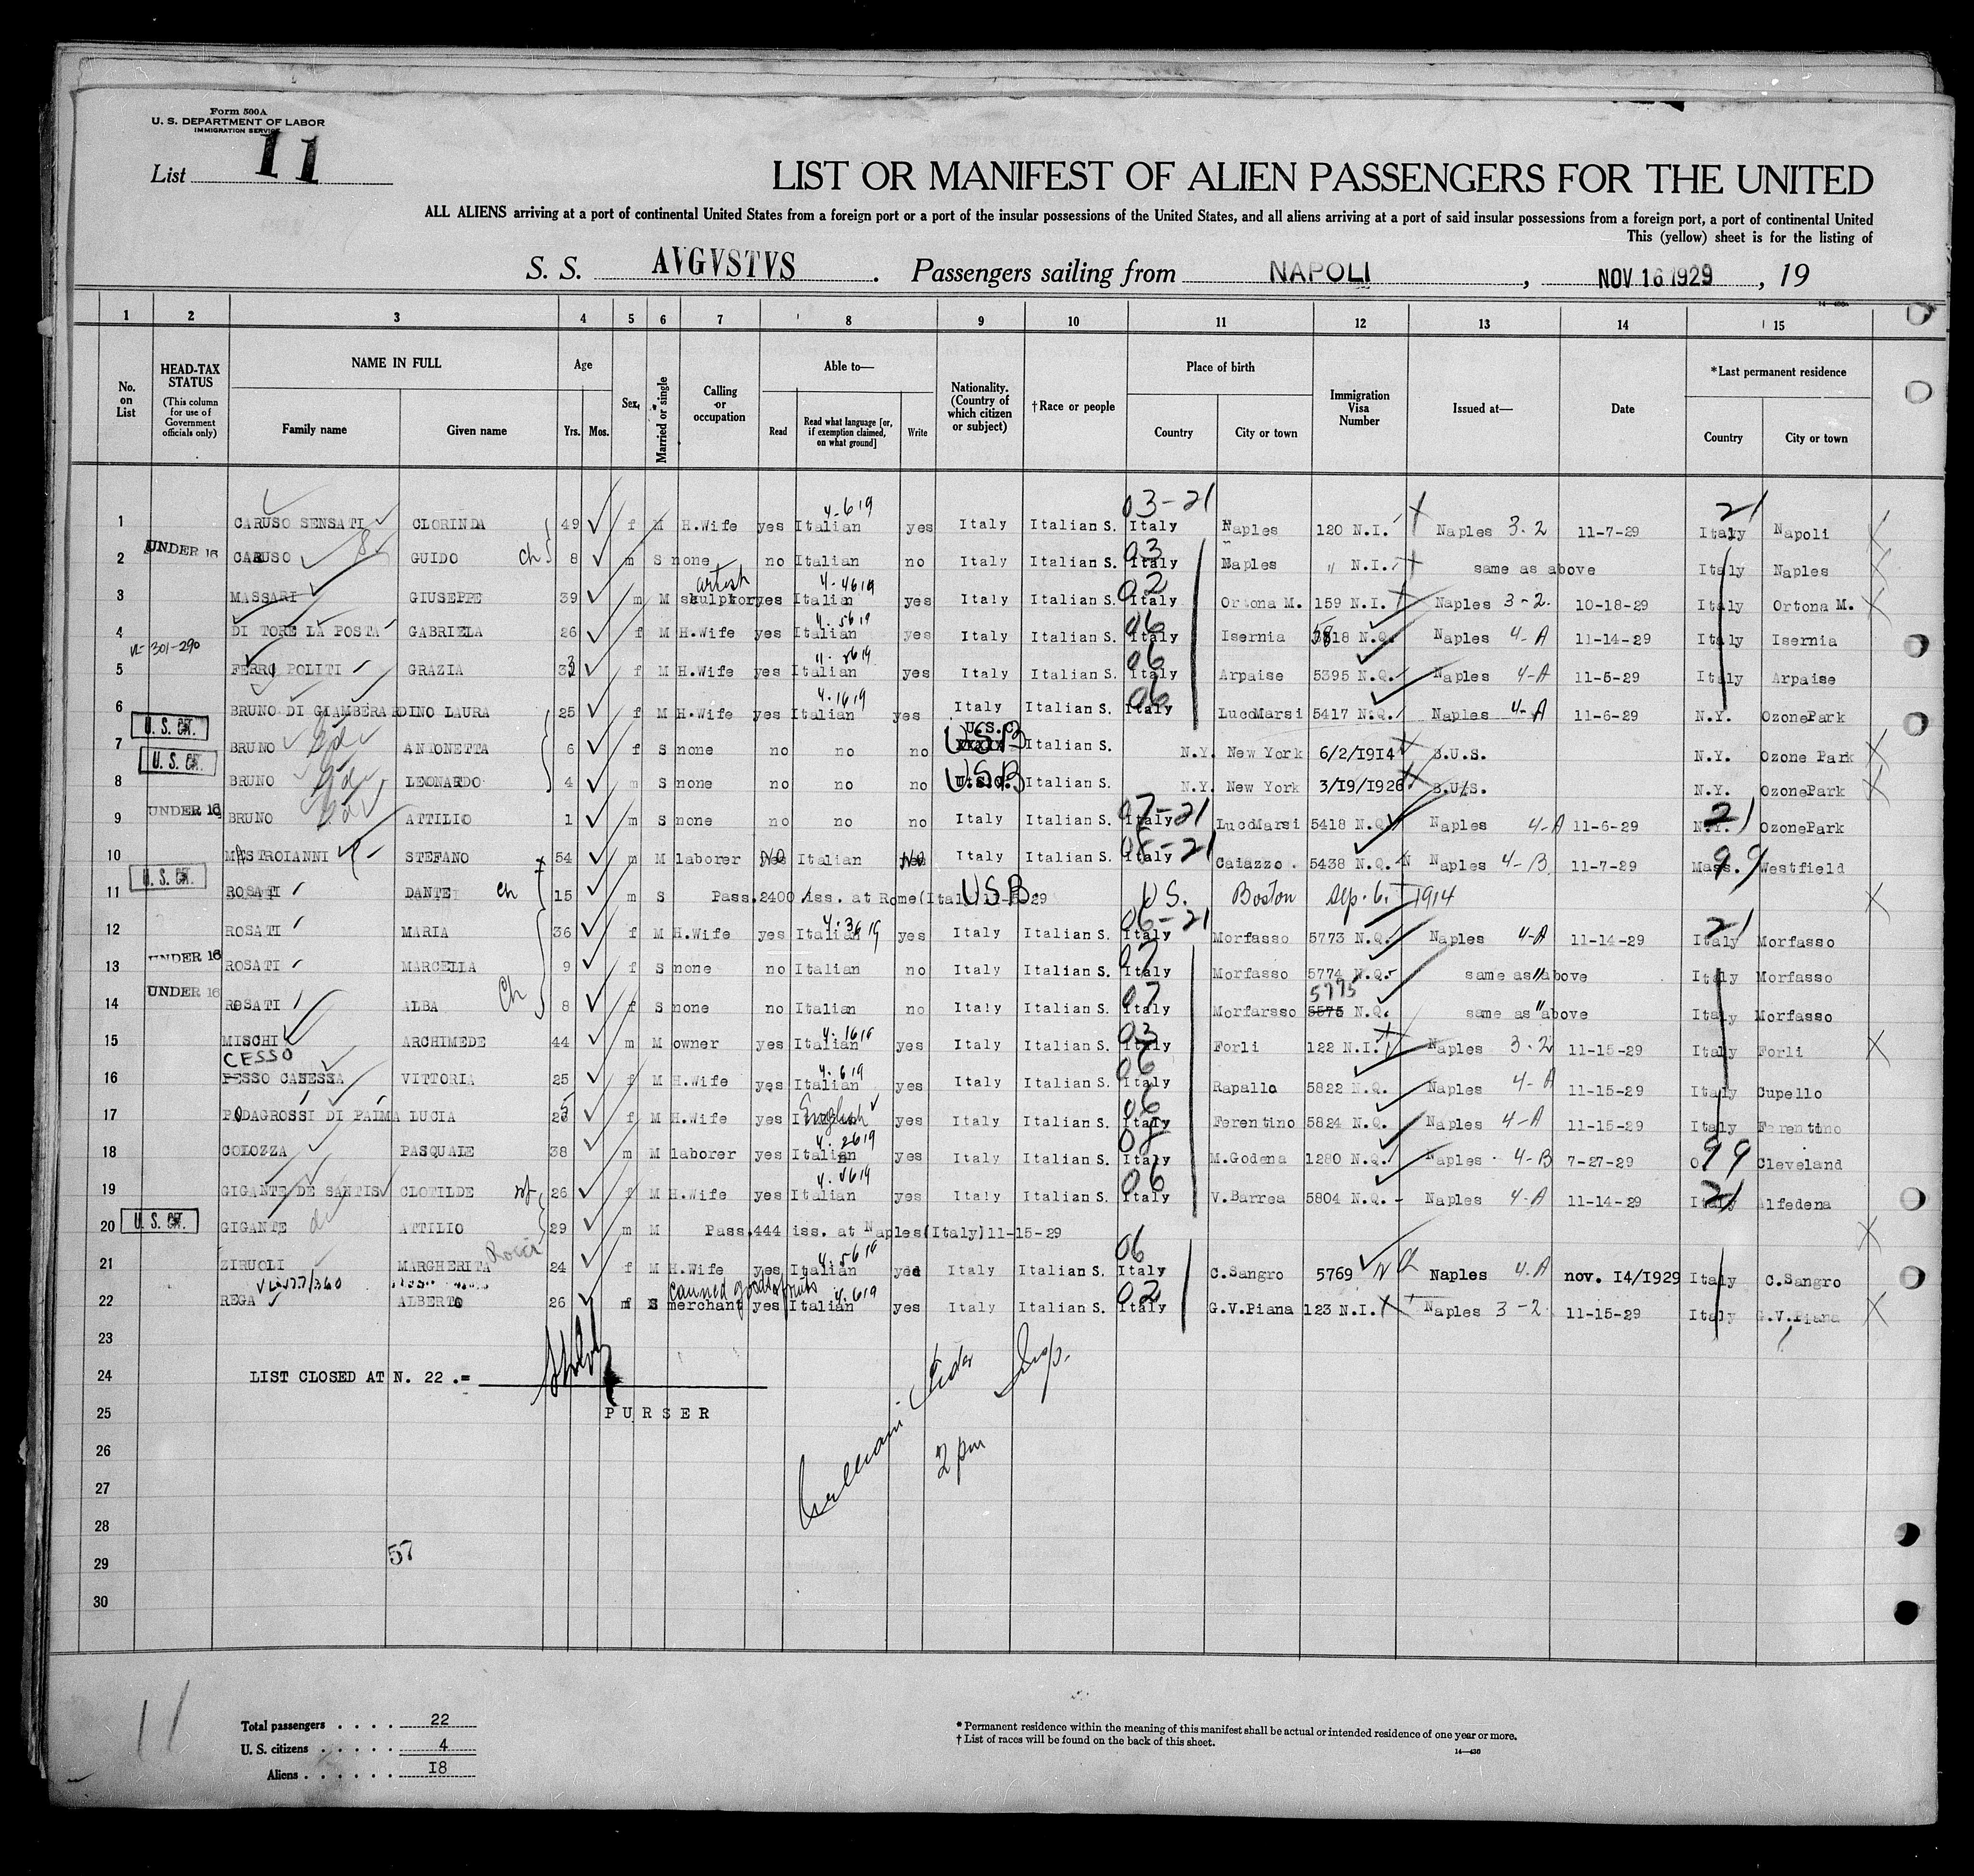 Form 500A
U. S. DEPARTMENT OF LABOR
IMMIGRATION SERVICE
List 11
LIST OR MANIFEST OF ALIEN PASSENGERS FOR THE UNITED
ALL ALIENS arriving at a port of continental United States from a foreign port or a port of the insular possessions of the United States, and all aliens arriving at a port of said insular possessions from a foreign port, a port of continental United
This (yellow) sheet is for the listing of
S. S. AVGVSTVS . Passengers sailing from NAPOLI , NOV 16 1929 , 19
1 2 3 4 5 6 7 8 9 10 11 12 13 14 15
No. on List
HEAD-TAX STATUS (This column for use of Government officials only)
NAME IN FULL Family name Given name
Age Yrs. Mos.
Sex
Married or single
Calling or occupation
Able to— Read Read what language [or, if exemption claimed, on what ground] Write
Nationality. (Country of which citizen or subject)
†Race or people
Place of birth Country City or town
Immigration Visa Number
Issued at—
Date
*Last permanent residence Country City or town
03-21 21
1 CARUSO SENSATI CLORINDA 49 f M H.Wife yes Italian yes Italy Italian S. Italy Naples 120 N.I. Naples 3-2 11-7-29 Italy Napoli
2 UNDER 16 CARUSO GUIDO ch 8 m S none no Italian no Italy Italian S. 03 Italy Naples " N.I. same as above Italy Naples
artist
3 MASSARI GIUSEPPE 39 m M skulptor yes Italian yes Italy Italian S. 02 Italy Ortona M. 159 N.I. Naples 3-2. 10-18-29 Italy Ortona M.
4 DI TORE LA POSTA GABRIELA 26 f M H.Wife yes Italian yes Italy Italian S. 06 Italy Isernia 5818 N.Q. Naples 4-A 11-14-29 Italy Isernia
301-290
5 FERRO POLITI GRAZIA 33 f M H.Wife yes Italian yes Italy Italian S. 06 Italy Arpaise 5395 N.Q. Naples 4-A 11-5-29 Italy Arpaise
6 BRUNO DI GIAMBERARDINO LAURA 25 f M H.Wife yes Italian yes Italy Italian S. 06 Italy LucoMarsi 5417 N.Q. Naples 4-A 11-6-29 N.Y. OzonePark
7 U. S. CIT. BRUNO ANTONETTA 6 f S none no no no USB Italian S. N.Y. New York 6/2/1914 B.U.S. N.Y. Ozone Park
8 U. S. CIT. BRUNO LEONARDO 4 m S none no no no USB Italian S. N.Y. New York 3/19/1926 B.U.S. N.Y. OzonePark
9 UNDER 16 BRUNO ATTILIO 1 m S none no no no Italy Italian S. 07-21 Italy LucoMarsi 5418 N.Q. Naples 4-A 11-6-29 N.Y. 21 OzonePark
10 MASTROIANNI STEFANO 54 m M laborer No Italian No Italy Italian S. Italy Caiazzo . 5438 N.Q. Naples 4-B 11-7-29 Mass. 99 Westfield
11 U. S. CIT. ROSATI DANTE ch 15 m S Pass.2400 iss. at Rome(Italy) 29 USB U S. Boston Sep. 6. 1914
12 ROSATI MARIA 36 f M H.Wife yes Italian yes Italy Italian S. 06-21 Italy Morfasso 5773 N.Q. Naples 4-A 11-14-29 Italy 21 Morfasso
13 UNDER 16 ROSATI MARCELLA 9 f S none no Italian no Italy Italian S. 07 Italy Morfasso 5774 N.Q. same as above Italy Morfasso
5775
14 UNDER 16 ROSATI ALBA Ch 8 f S none no Italian no Italy Italian S. 07 Italy Morfarsso 5575 N.Q. same as above Italy Morfasso
15 MISCHI ARCHIMEDE 44 m M owner yes Italian yes Italy Italian S. 03 Italy Forli 122 N.I. Naples 3-2 11-15-29 Italy Forli
CESSO
16 PESSO CASESSA VITTORIA 25 f M H.Wife yes Italian yes Italy Italian S. 06 Italy Rapallo 5822 N.Q. Naples 4-A 11-15-29 Italy Cupello
17 PODAGROSSI DI PALMA LUCIA 25 f M H.Wife yes English yes Italy Italian S. 06 Italy Ferentino 5824 N.Q. Naples 4-A 11-15-29 Italy Farentino
18 COLOZZA PASQUALE 38 m M laborer yes Italian yes Italy Italian S. 08 Italy M.Godena 1280 N.Q. Naples 4-B 7-27-29 O 99 Cleveland
19 GIGANTE DE SANTIS CLOTILDE 26 f M H.Wife yes Italian yes Italy Italian S. 06 Italy V.Barrea 5804 N.Q. Naples 4-A 11-14-29 Italy 21 Alfedena
20 U. S. CIT. GIGANTE ATTILIO 29 m M Pass.444 iss. at Naples(Italy)11-15-29
21 ZIRUOLI MARGHERITA 24 f M H.Wife yes Italian yes Italy Italian S. 06 Italy C.Sangro 5769 NQ Naples 4-A nov. 14/1929 Italy C.Sangro
canned goods & fruits
22 REGA ALBERTO 26 m S merchant yes Italian yes Italy Italian S. 02 Italy G.V.Piana 123 N.I. Naples 3-2 11-15-29 Italy G.V.Piana
23
24 LIST CLOSED AT N. 22 .=
25 PURSER
26 2 pm
27
28
29 57
30
11
Total passengers . . . . 22
U. S. citizens . . . . . 4
Aliens . . . . . . 18
* Permanent residence within the meaning of this manifest shall be actual or intended residence of one year or more.
† List of races will be found on the back of this sheet.
14—430